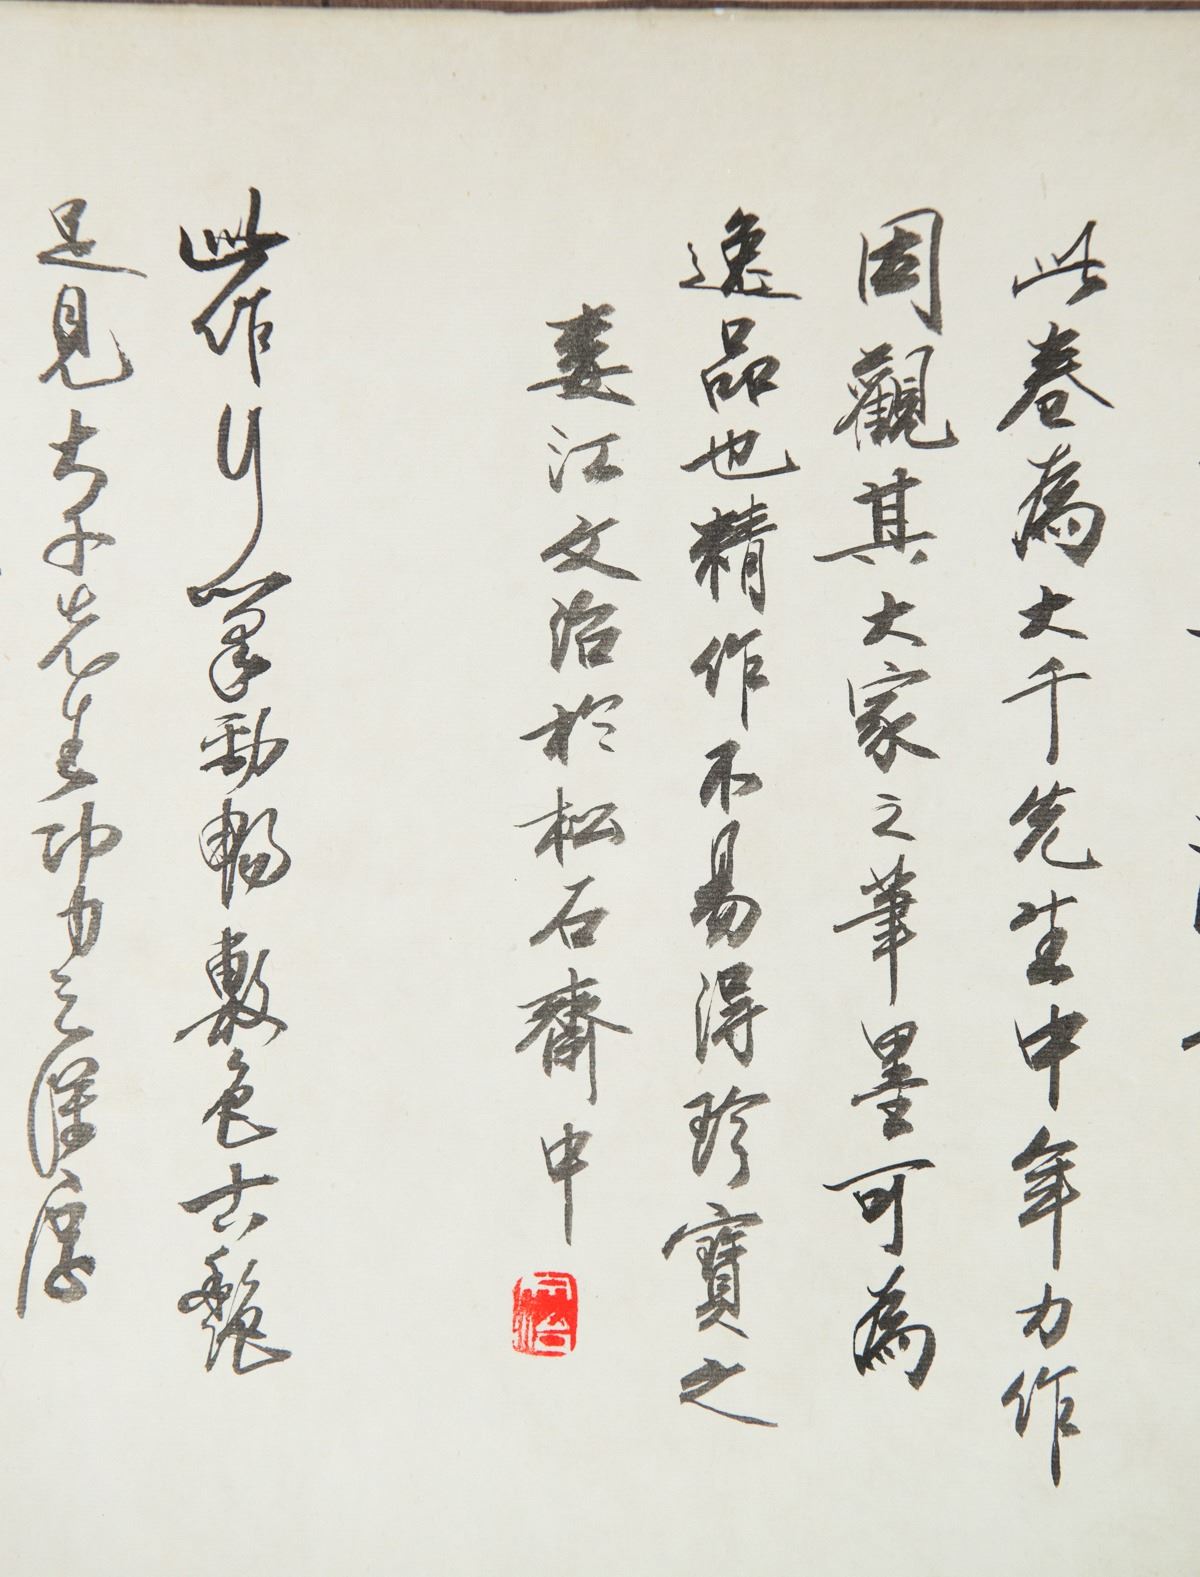 此卷為大千先生中年力作
固觀其大家之筆墨可為
逸品也精作不易得珍寶之
婁江文治於松石齋中
此作行筆勁暢敷色古艷
足見大千先生功力之深厚